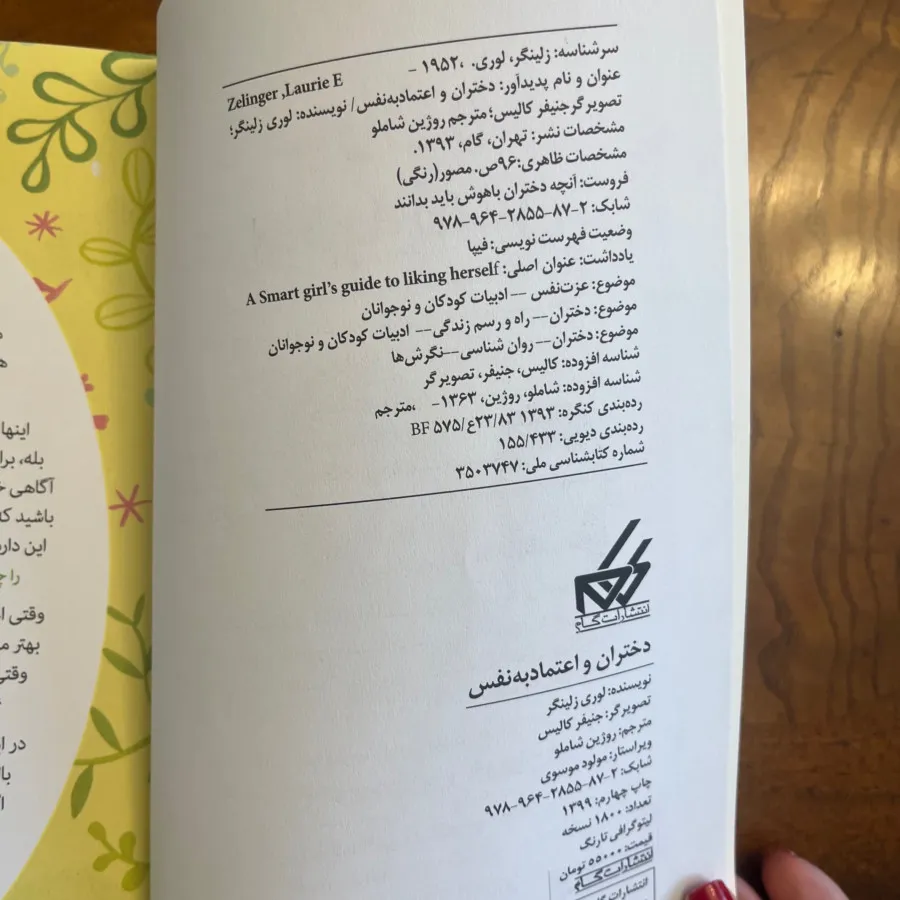 سرشناسه: زلینگر، لوری. ،۱۹۵۲ –
Zelinger ,Laurie E
عنوان و نام پدیدآور: دختران و اعتمادبه‌نفس/ نویسنده: لوری زلینگر؛
تصویرگرجنیفر کالیس؛ مترجم روژین شاملو
مشخصات نشر: تهران، گام، ۱۳۹۳.
مشخصات ظاهری:۹۶ص. مصور(رنگی)
فروست: آنچه دختران باهوش باید بدانند
شابک: ۲-۸۷-۲۸۵۵-۹۶۴-۹۷۸
وضعیت فهرست نویسی: فیپا
یادداشت: عنوان اصلی: A Smart girl’s guide to liking herself
موضوع: عزت‌نفس –– ادبیات کودکان و نوجوانان
موضوع: دختران–– راه و رسم زندگی–– ادبیات کودکان و نوجوانان
موضوع: دختران–– روان شناسی––نگرش‌ها
شناسه افزوده: کالیس، جنیفر، تصویرگر
شناسه افزوده: شاملو، روژین، ۱۳۶۳- ،مترجم
رده‌بندی کنگره: ۱۳۹۳ ۲۳/۸۳ع/۵۷۵ BF
رده‌بندی دیویی: ۱۵۵/۴۳۳
شماره کتابشناسی ملی: ۳۵۰۳۷۴۷
انتشارات گام
دختران و اعتمادبه‌نفس
نویسنده: لوری زلینگر
تصویرگر: جنیفر کالیس
مترجم: روژین شاملو
ویراستار: مولود موسوی
شابک: ۲-۸۷-۲۸۵۵-۹۶۴-۹۷۸
چاپ چهارم: ۱۳۹۹
تعداد: ۱۸۰۰ نسخه
لیتوگرافی تارنگ
قیمت: ۵۵۰۰۰ تومان
انتشارات گام
انتشارات
اینها
بله، برا
آگاهی
باشید که
این دار
را
وقتی
بهتر
وقتی
در